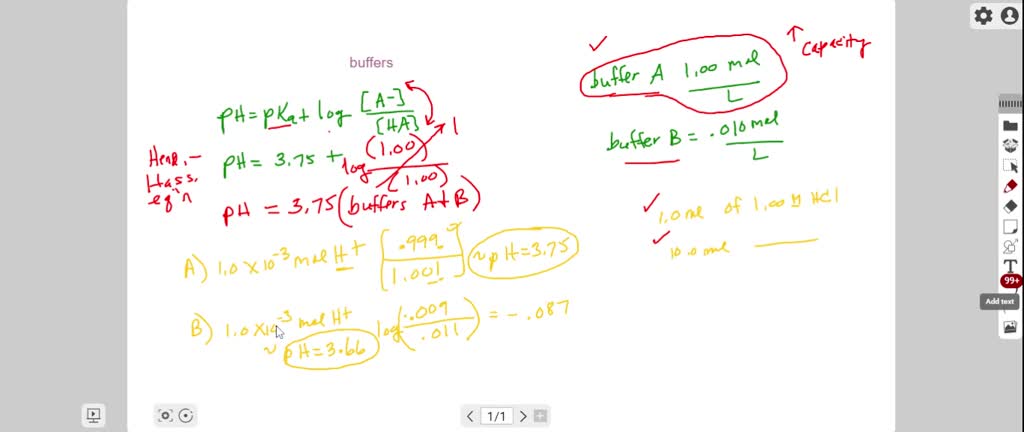 buffers
pH = pKa + log [A-]/[HA]
Hen. - Hass. eq'n
pH = 3.75 + log (1.00)/(1.00) 1
pH = 3.75 (buffers A + B)
A) 1.0 x 10-3 mol H+ [.999/1.001] ~pH = 3.75
B) 1.0 x 10-3 mol H+ log (.009/.011) = -.087
~ pH = 3.66
✓ ↑ Capacity
buffer A 1.00 mol/L
buffer B = .010 mol/L
✓ 1.0 ml of 1.00 M HCl
✓ 10.0 ml ——
1/1
T
99+
Add text